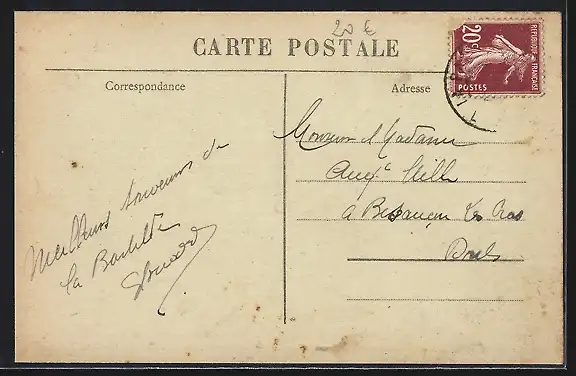 20 €
CARTE POSTALE
Correspondance
Adresse
20c
REPUBLIQUE FRANÇAISE
POSTES
Meilleurs Souvenirs de
la
Monsieur et Madame
Aug.te
à Besançon les